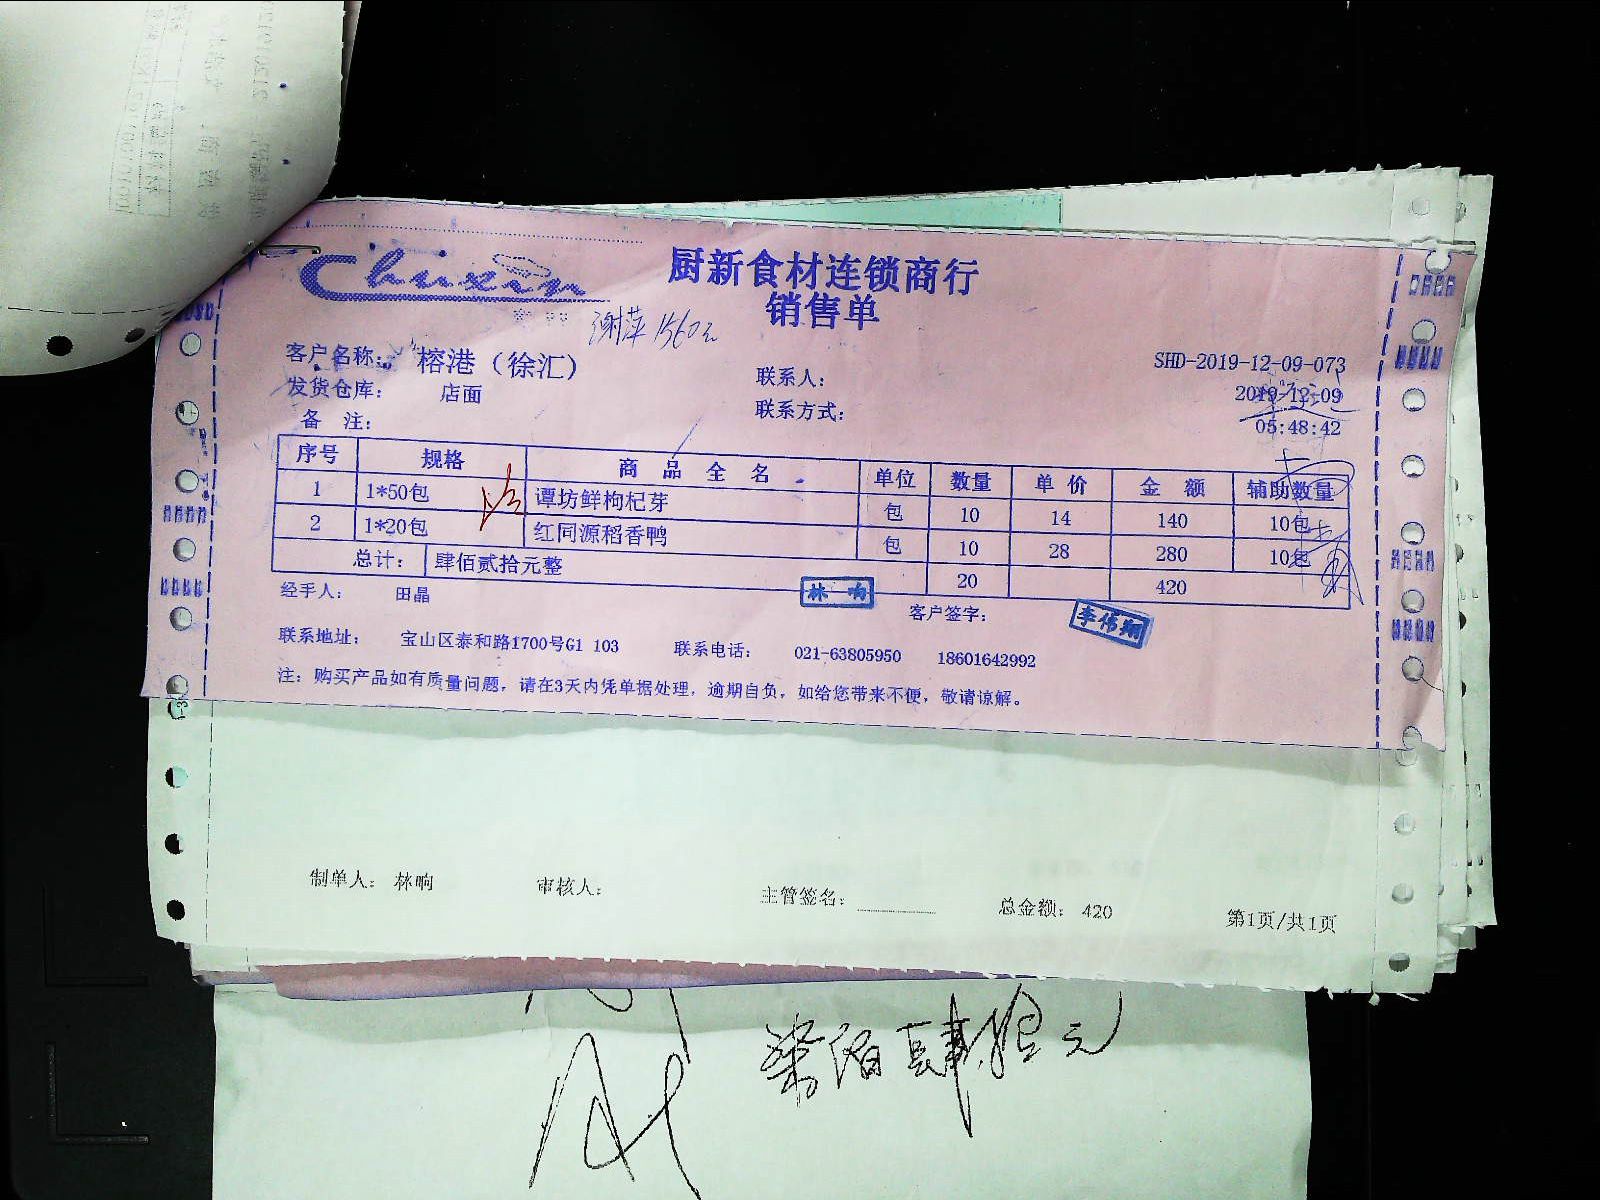 Chuxin
厨新食材连锁商行
销售单
谢萍 1560元
客户名称： 榕港（徐汇）
联系人：
SHD-2019-12-09-073
发货仓库： 店面
联系方式：
2019-12-09
备 注：
05:48:42
序号 规格 商 品 全 名 单位 数量 单 价 金 额 辅助数量
1 1*50包 谭坊鲜枸杞芽 包 10 14 140 10包
2 1*20包 红同源稻香鸭 包 10 28 280 10包
总计： 肆佰贰拾元整 20 420
经手人： 田晶 林响 客户签字： 李伟翔
联系地址： 宝山区泰和路1700号G1 103 联系电话： 021-63805950 18601642992
注：购买产品如有质量问题，请在3天内凭单据处理，逾期自负，如给您带来不便，敬请谅解。
制单人： 林响 审核人： 主管签名： 总金额： 420 第1页/共1页
柒佰肆拾元